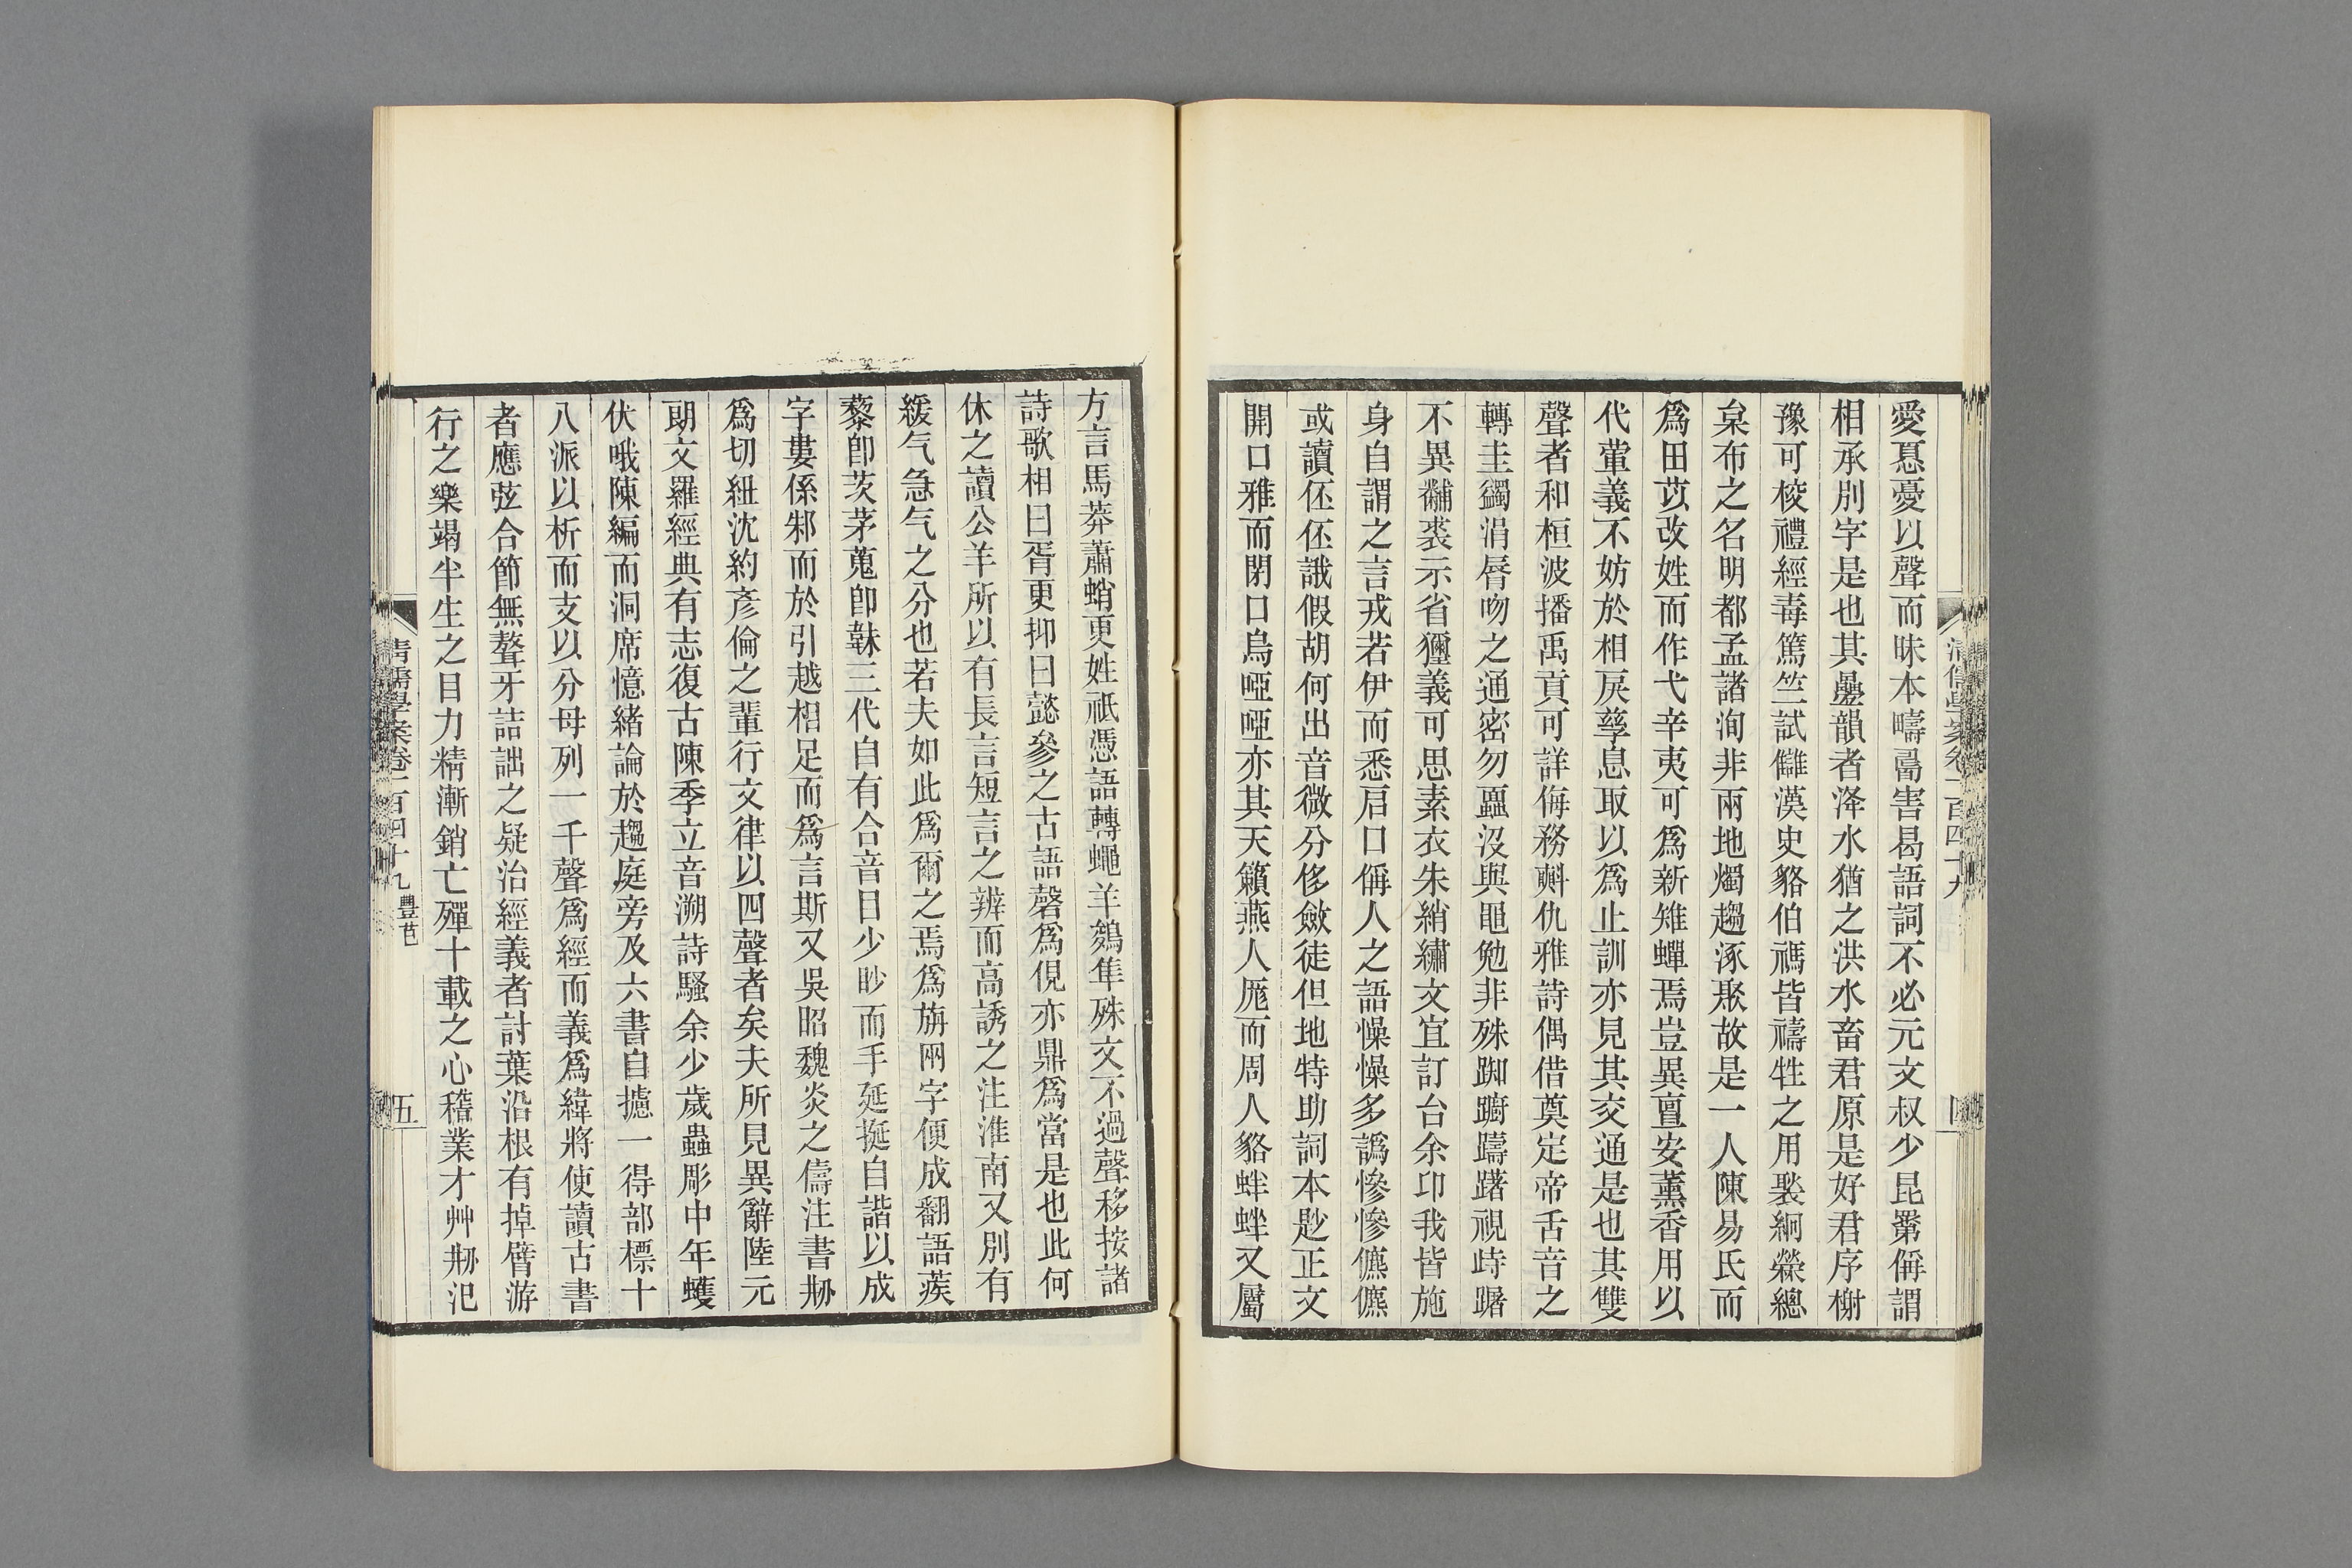 愛㤅憂以聲而昧本疇𠷎害曷語詞不必元文叔少昆䍧偁謂
相承別字是也其㬪韻者洚水猶之洪水畜君原是好君序榭
豫可校禮經毒篤竺試讎漢史貉伯禡皆禱牲之用褧絅檾總
枲布之名明都孟諸洵非兩地燭趨涿聚故是一人陳易氏而
爲田苡改姓而作弋辛夷可爲新雉蟬焉豈異亶安薰香用以
代葷義不妨於相戾孳息取以爲止訓亦見其交通是也其雙
聲者和桓波播禹貢可詳侮務㪺仇雅詩偶借奠定帝舌音之
轉圭蠲涓脣吻之通密勿蠠沒與黽勉非殊踟躕躊躇視歭䠧
不異黼裘示省獮義可思素衣朱綃繡文宜訂台余卬我皆施
身自謂之言戎若伊而悉启口偁人之語懆懆多譌慘慘儦儦
或讀伾伾誐假胡何出音微分侈斂徒但地特助詞本尟正文
開口雅而閉口烏啞啞亦其天籟燕人厖而周人貉蛘蛘又屬
方言馬莽蕭蛸更姓祇憑語轉蠅羊鷂隼殊文不過聲移按諸
詩歌相曰胥更抑曰懿參之古語磬爲俔亦鼎爲當是也此何
休之讀公羊所以有長言短言之辨而高誘之注淮南又別有
緩气急气之分也若夫如此爲爾之焉爲旃兩字便成翻語蒺
藜卽茨茅蒐卽韎三代自有合音日少眇而手延挻自諧以成
字婁係邾而於引越相足而爲言斯又吳昭魏炎之儔注書刱
爲切紐沈約彥倫之輩行文律以四聲者矣夫所見異辭陸元
朗文羅經典有志復古陳季立音溯詩騷余少歲蟲彫中年蠖
伏哦陳編而洞席憶緒論於趨庭旁及六書自攄一得部標十
八派以析而支以分母列一千聲爲經而義爲緯將使讀古書
者應弦合節無聱牙詰詘之疑治經義者討葉沿根有掉臂游
行之樂竭半生之目力精漸銷亡殫十載之心稽業才艸刱汜
清儒學案卷一百四十九 豐芑
五